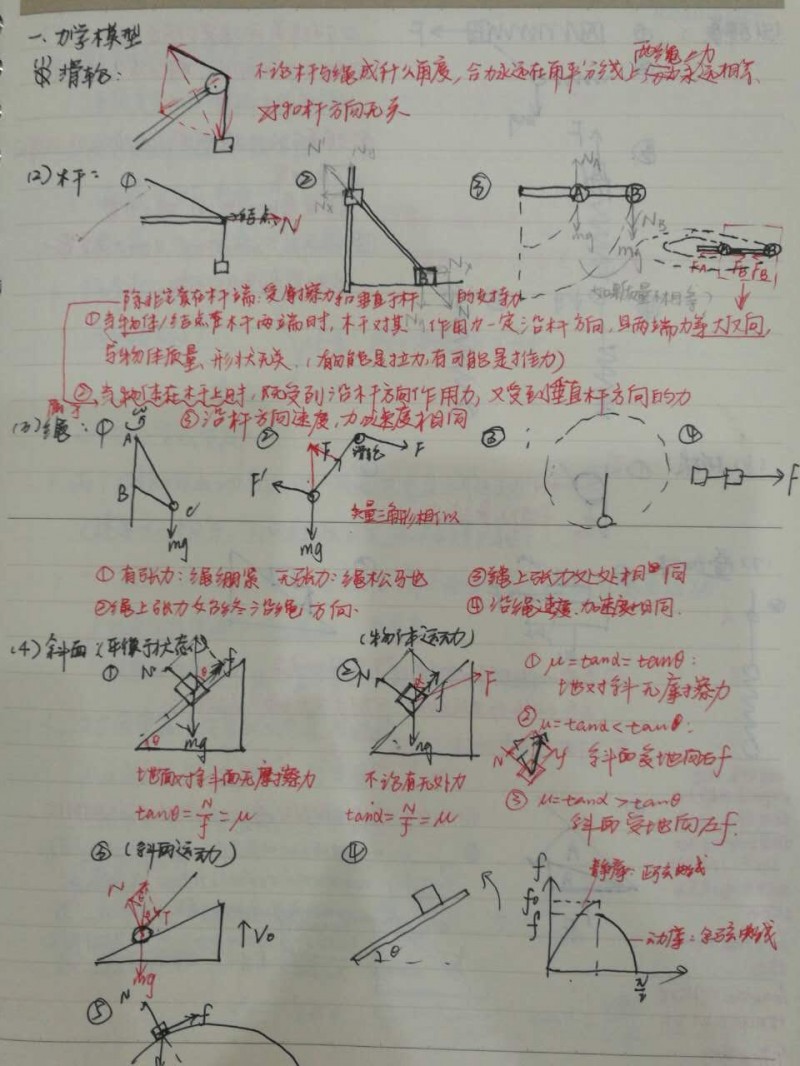 一、力学模型
(1)滑轮：
不论杆与绳成什么角度，合力永远在角平分线上 两绳上力永远相等
对和杆方向无关
(2)杆： ① 结点 N ② N A B ③ N_A A B mg mg N_B
F_A F_B F_B'
(如果质量不相等)
除非它套在杆端：受摩擦力和垂直于杆的支持力
①当物体/结点在杆两端时，杆对其作用力一定沿杆方向，且两端力等大反向，
与物体质量、形状无关。(有可能是拉力，有可能是推力)
②当物体在杆上时，既受到沿杆方向作用力，又受到垂直杆方向的力
属于 ③沿杆方向速度，力加速度相同
(3)绳： ① A B C mg ② F' F 滑轮 F mg ③ ④ F
矢量三角形相似
①有张力：绳绷紧 无张力：绳松弛 ③绳上张力处处相同
②绳上张力始终沿绳方向. ④沿绳速度.加速度相同.
(4)斜面 (平衡状态) (物体运动)
① N θ f mg θ ② N α f F mg
①μ=tanα=tanθ：
地对斜无摩擦力
②μ=tanα<tanθ：
N f 斜面受地向右f
地面对斜面无摩擦力 不论有无外力
③μ=tanα>tanθ
斜面受地向左f.
tanθ=N/f=μ tanα=N/f=μ
③(斜面运动) ④
N f mg ↑V₀ θ
f f₀ f 静摩：正弦曲线
动摩：余弦曲线
π/2
⑤ N f